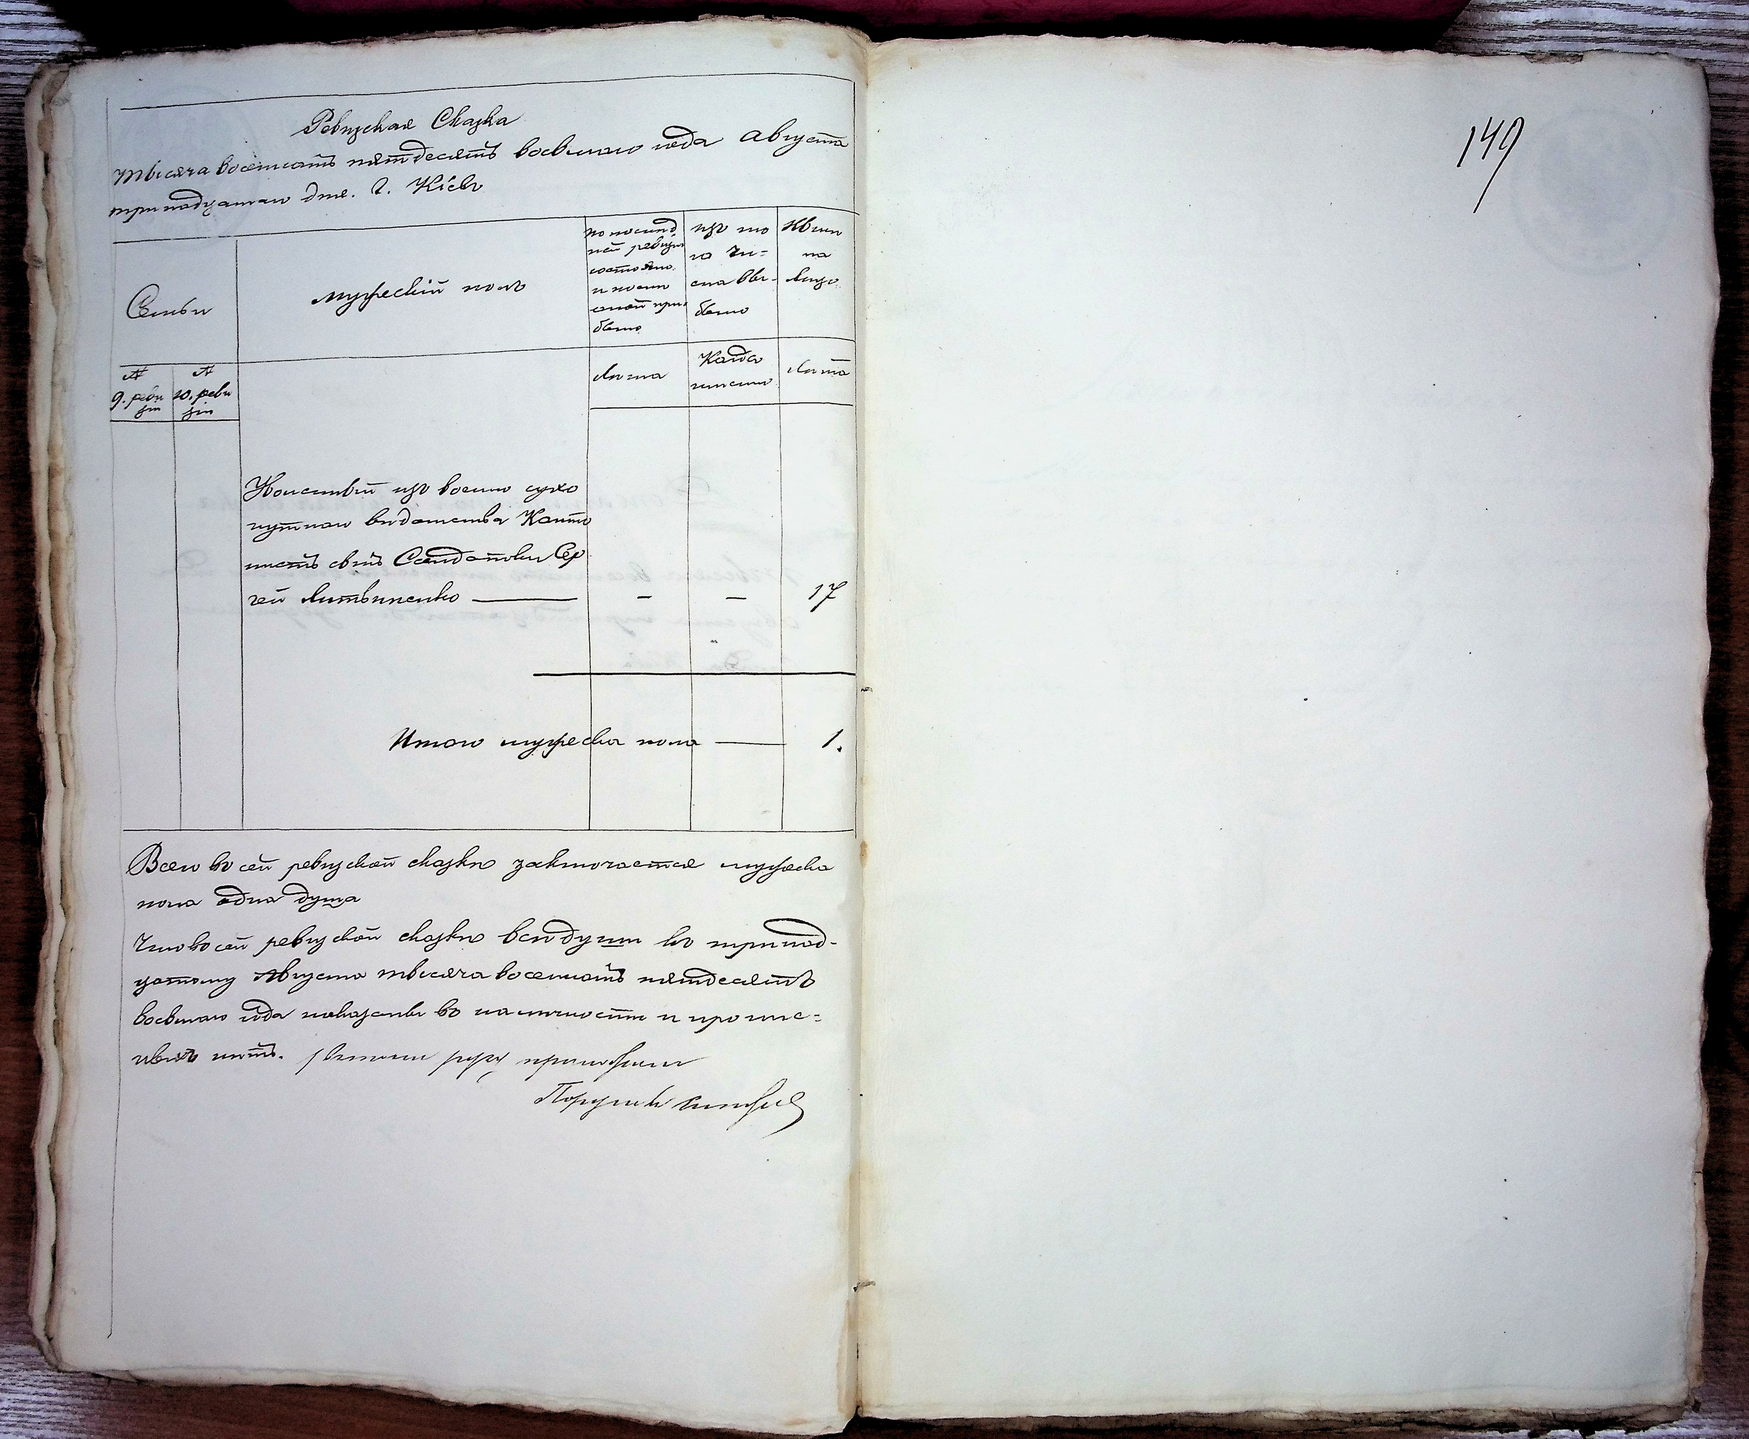 Ревизская Сказка
тысяча восемсотъ пятдесятъ восьмаго года Августа
тринадцатаго дня. Г. Кіевъ
Семьи
мужескій полъ
по послѣд
ней ревизіи
состояло
и после
оной при
было
изъ то
го чи=
сла вы-
было
Нынѣ
на
лицо
№
9. реви
зіи
№
10. реви
зіи
Лѣта
Когда
именно
Лѣта
изъ военно сухо
путнаго вѣдомстваКанто
нистъ сынъ Солдатки Сер
гѣй Литвиненко — — — 17
Итого мужеска пола — 1.
Всего въ сей ревизской сказкѣ заключается мужеска
пола одна душа
Что въ сей ревизской сказкѣ всѣ души къ тринад-
цатому Августа тысяча восемсотъ пятдесятъ
восьмаго года показаны въ наличности и пропис=
ныхъ нѣтъ. руку приложилъ
Поручикъ
149